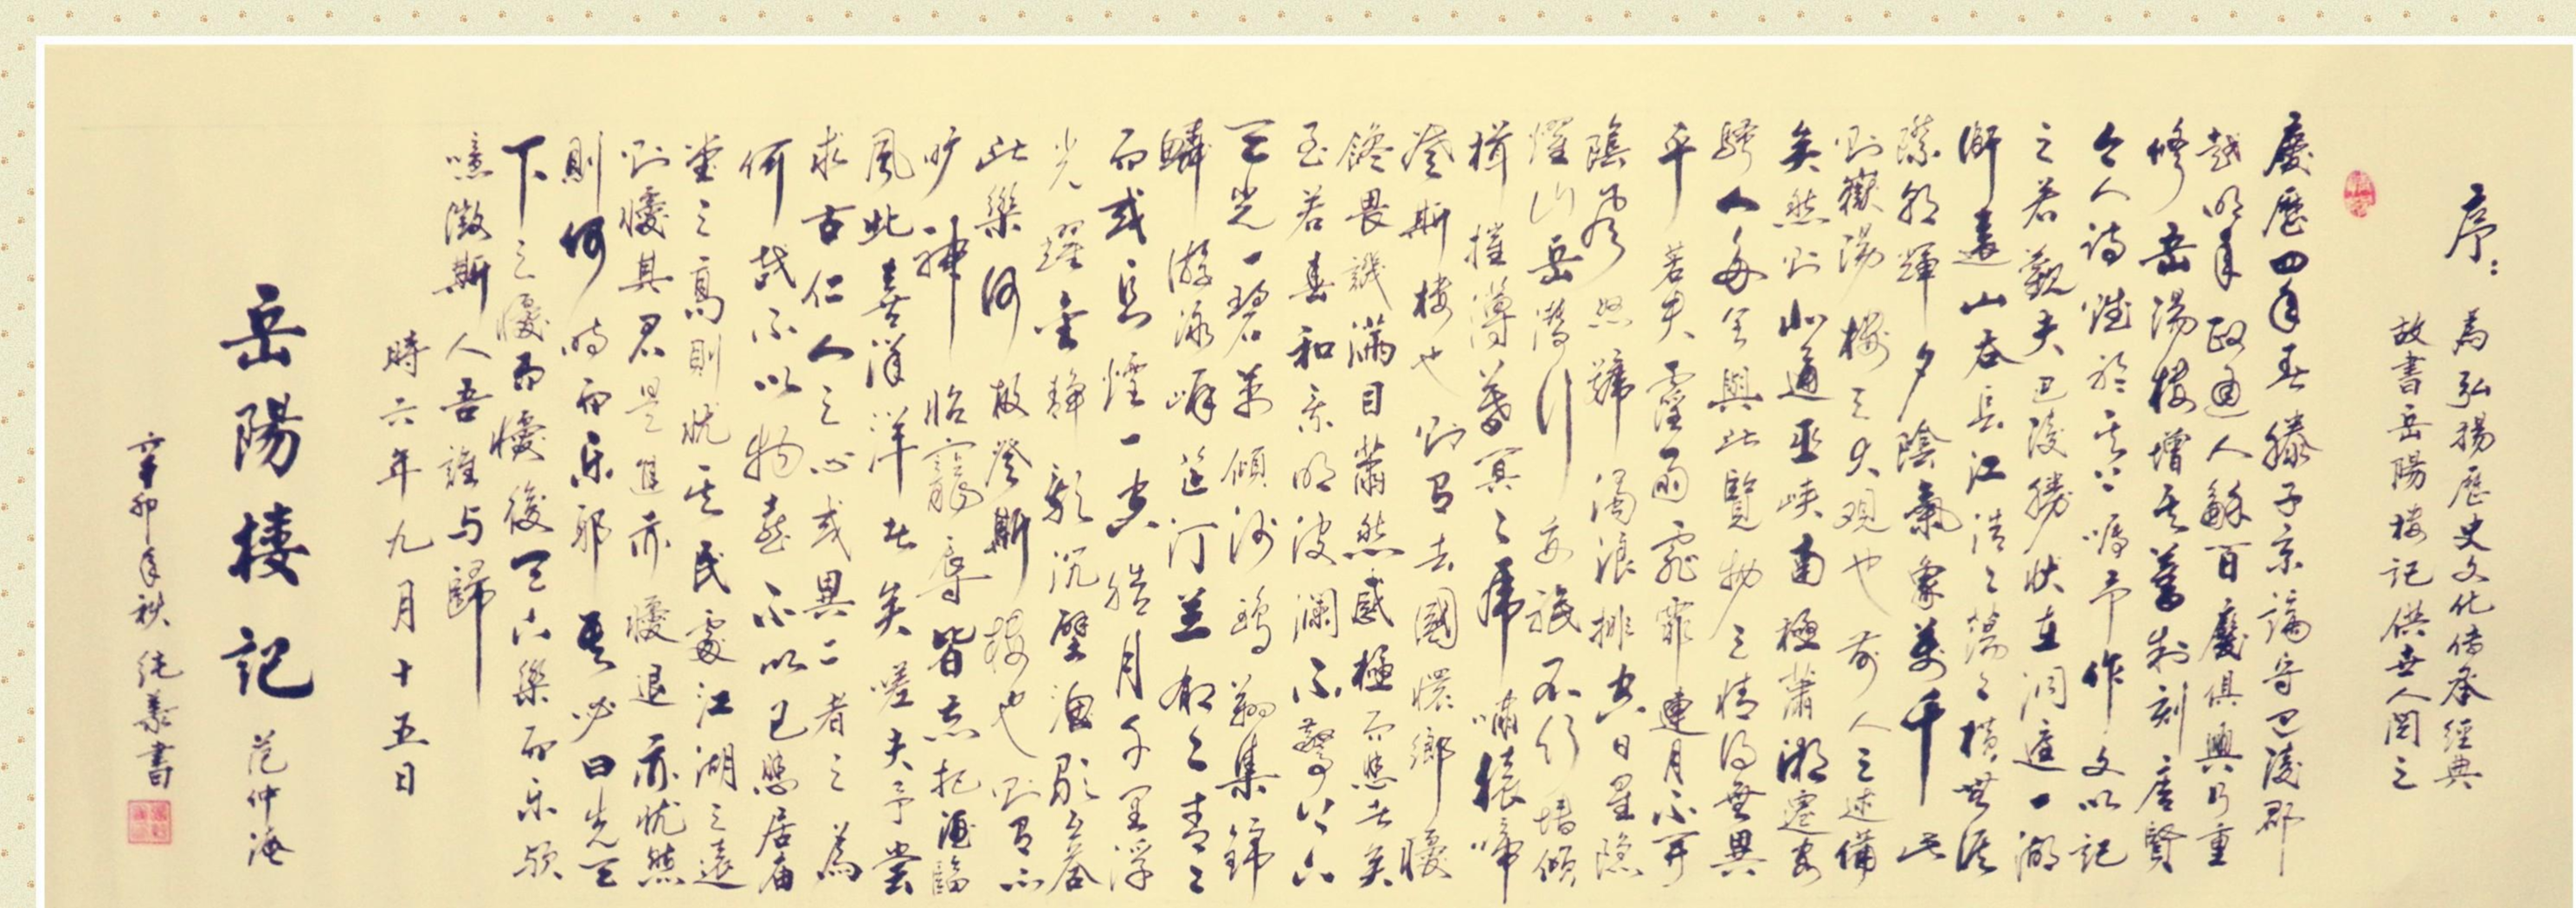 序：為弘揚歷史文化傳承經典
故書岳陽樓記供世人閱之
慶歷四年春滕子京謫守巴陵郡
越明年政通人和百廢俱興乃重
修岳陽樓增其舊制刻唐賢
今人詩賦於其上囑予作文以記
之若觀夫巴陵勝狀在洞庭一湖
銜遠山吞長江浩々蕩々橫無涯
際朝輝夕陰氣象萬千此
則嶽陽樓之大观也前人之述備
矣然則北通巫峽南極瀟湘遷客
騷人多会與此覽物之情得無異
乎若夫霪雨霏霏連月不開
陰風怒號濁浪排空日星隐
耀山岳潛行商旅不行墙傾
楫摧薄暮冥々虎嘯猿啼
登斯樓也則有去國懷鄉憂
饞畏譏滿目蕭然感極而悲者矣
至若春和景明波瀾不驚上下
天光一碧萬傾沙鷗翔集錦
鱗游泳岸芷汀兰郁々青々
而或長煙一空皓月千里浮
光躍金靜影沉璧漁歌互答
此樂何極登斯樓也則有心
旷神怡寵辱皆忘把酒臨
風此喜洋洋者矣嗟夫予嘗
求古仁人之心或異二者之為
何哉不以物喜不以己悲居庙
堂之高則忧其民處江湖之遠
則憂其君是進亦憂退亦忧然
則何時而乐耶其必曰先天
下之憂而憂後天下樂而乐歟
噫微斯人吾誰与歸
時六年九月十五日
岳陽樓記 范仲淹
辛卯年秋 純義書